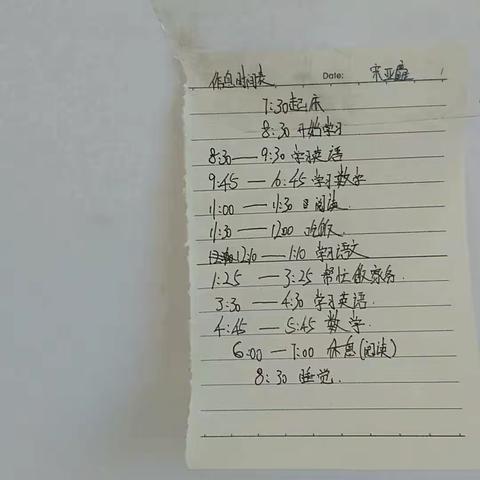 作息时间表 Date: 宋亚鑫
7:30起床
8:30 开始学习
8:30——9:30 学习英语
9:45——10:45 学习数学
11:00——11:30 阅读
11:30——12:00 吃饭
12:10——1:10 学习语文
1:25——3:25 帮忙做家务
3:30——4:30 学习英语.
4:45——5:45 数学.
6:00——7:00 休息(阅读)
8:30 睡觉.